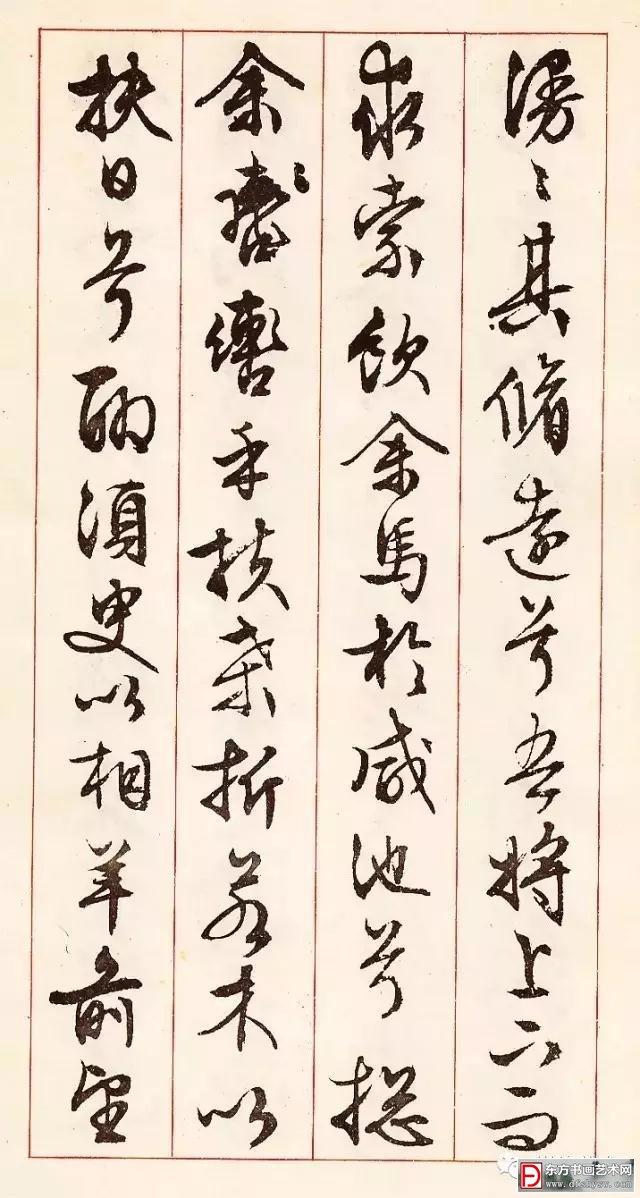 漫〻其脩遠兮吾將上下而
求索飲余馬於咸池兮揔
余轡乎扶桑折若木以
扶日兮聊須臾以相羊前望
东方书画艺术网